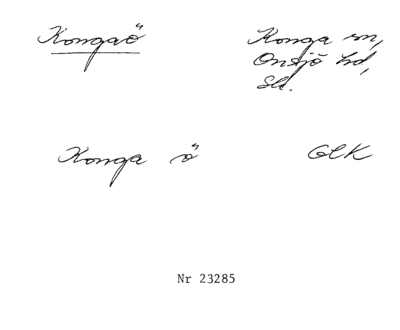 Kongaö Konga sn,
Onsjö hd,
Skl.
Konga ö GEK
Nr 23285